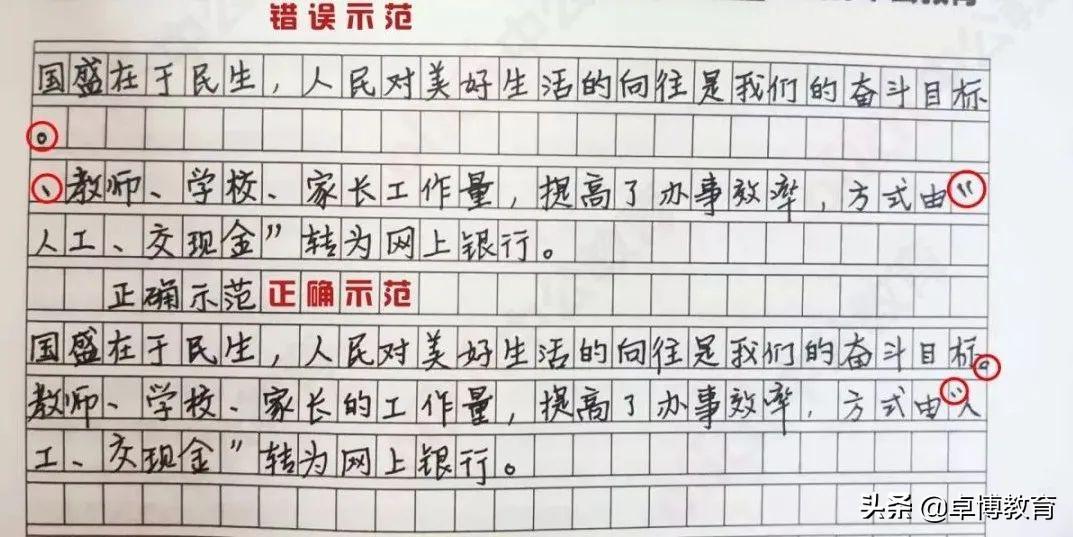 错误示范
国盛在于民生，人民对美好生活的向往是我们的奋斗目标
。
、教师、学校、家长工作量，提高了办事效率，方式由“
人工、交现金”转为网上银行。
正确示范 正确示范
国盛在于民生，人民对美好生活的向往是我们的奋斗目标。
教师、学校、家长的工作量，提高了办事效率，方式由“人
工、交现金”转为网上银行。
头条 @卓博教育